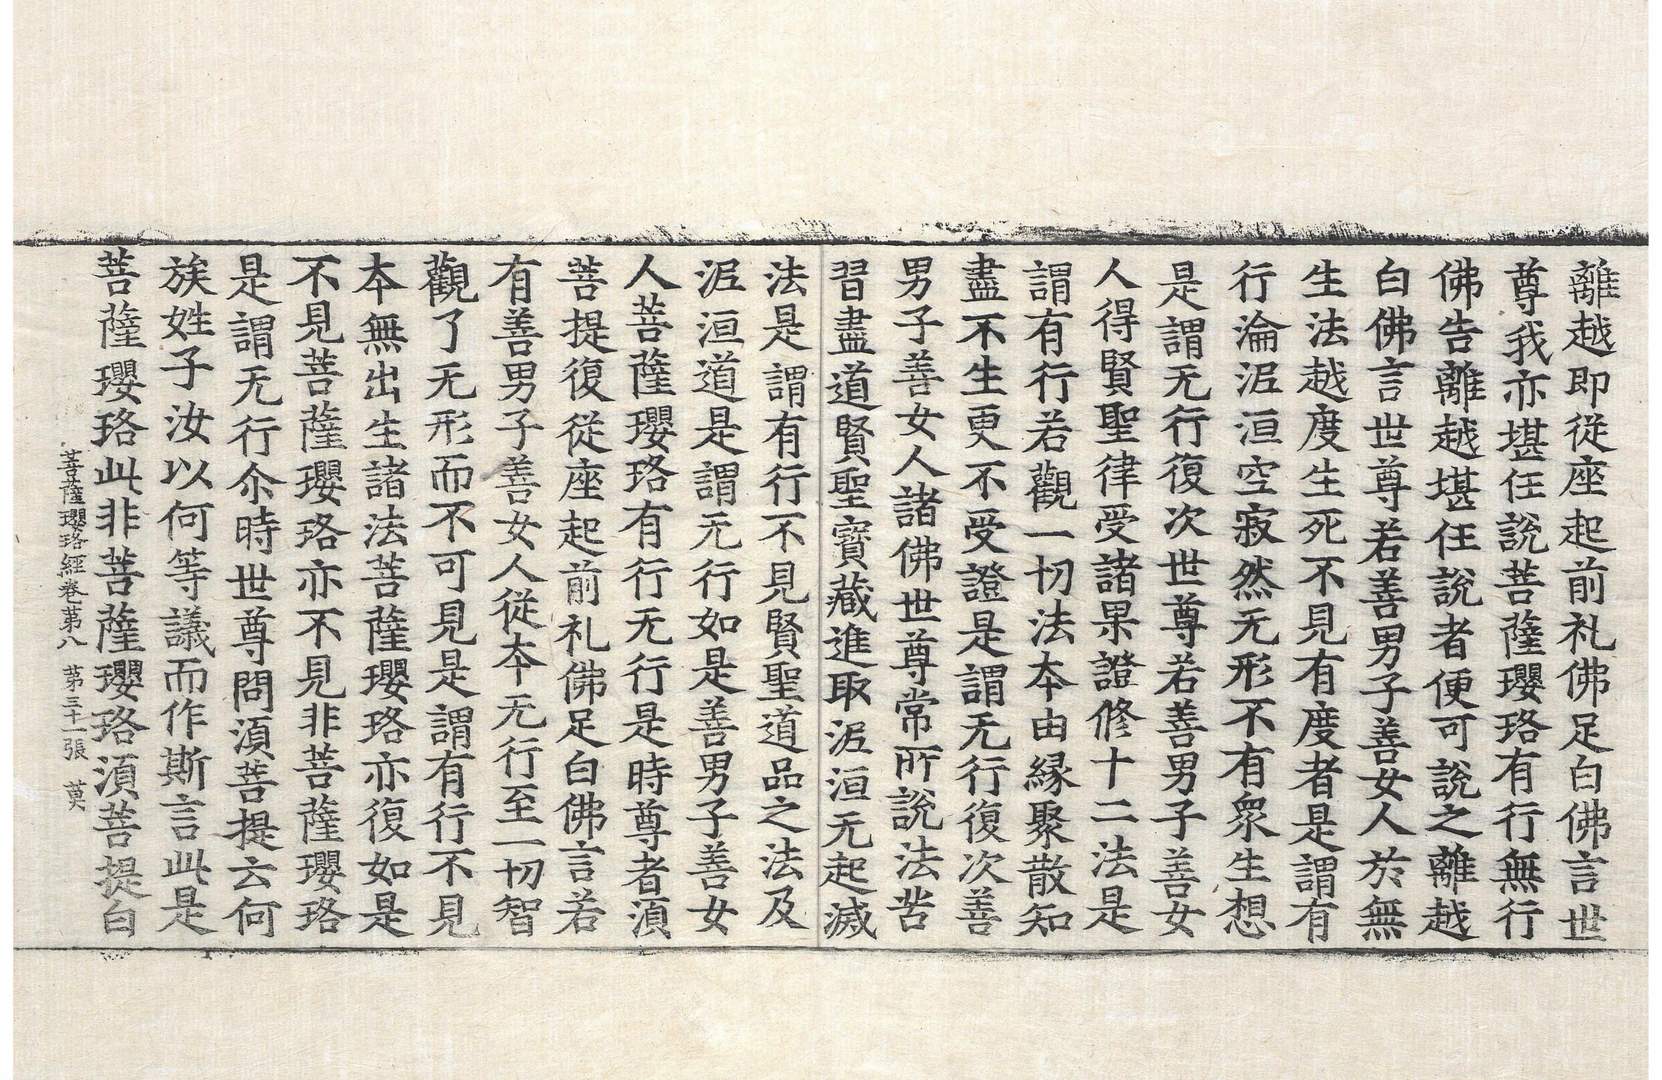 離越即從座起前礼佛足白佛言世
尊我亦堪任說菩薩瓔珞有行無行
佛告離越堪任說者便可說之離越
白佛言世尊若善男子善女人於無
生法越度生死不見有度者是謂有
行淪泥洹空寂然无形不有衆生想
是謂无行復次世尊若善男子善女
人得賢聖律受諸果證修十二法是
謂有行若觀一切法夲由緣聚散知
盡不生更不受證是謂无行復次善
男子善女人諸佛世尊常所說法苦
習盡道賢聖寶藏進取泥洹无起滅
法是謂有行不見賢聖道品之法及
泥洹道是謂无行如是善男子善女
人菩薩瓔珞有行无行是時尊者湏
菩提復從座起前礼佛足白佛言若
有善男子善女人從夲无行至一切智
觀了无形而不可見是謂有行不見
夲無出生諸法菩薩瓔珞亦復如是
不見菩薩瓔珞亦不見非菩薩瓔珞
是謂无行尒時世尊問湏菩提云何
族姓子汝以何等議而作斯言此是
菩薩瓔珞此非菩薩瓔珞湏菩提白
菩薩瓔珞經卷第八 第三十一張 莫